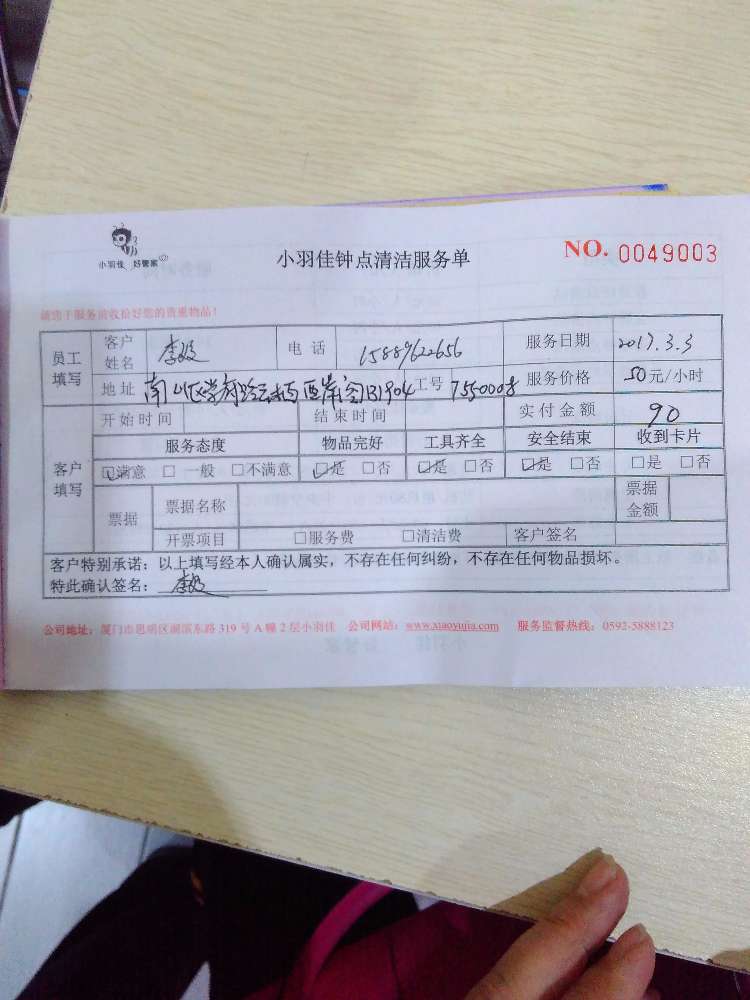 小羽佳 好管家
小羽佳钟点清洁服务单
NO. 0049003
请您于服务前收拾好您的贵重物品!
员工填写 客户姓名 李 电话 15889622656 服务日期 2017.3.3
地址 南山区学府路 西岸 B1904 工号 7550008 服务价格 50元/小时
开始时间 结束时间 实付金额 90
客户填写 服务态度 物品完好 工具齐全 安全结束 收到卡片
☑满意 □一般 □不满意 ☑是 □否 ☑是 □否 ☑是 □否 □是 □否
票据 票据名称 票据金额
开票项目 □服务费 □清洁费 客户签名
客户特别承诺:以上填写经本人确认属实,不存在任何纠纷,不存在任何物品损坏。
特此确认签名: 李
公司地址:厦门市思明区湖滨东路 319 号 A 幢 2 层小羽佳 公司网站:www.xiaoyujia.com 服务监督热线:0592-5888123